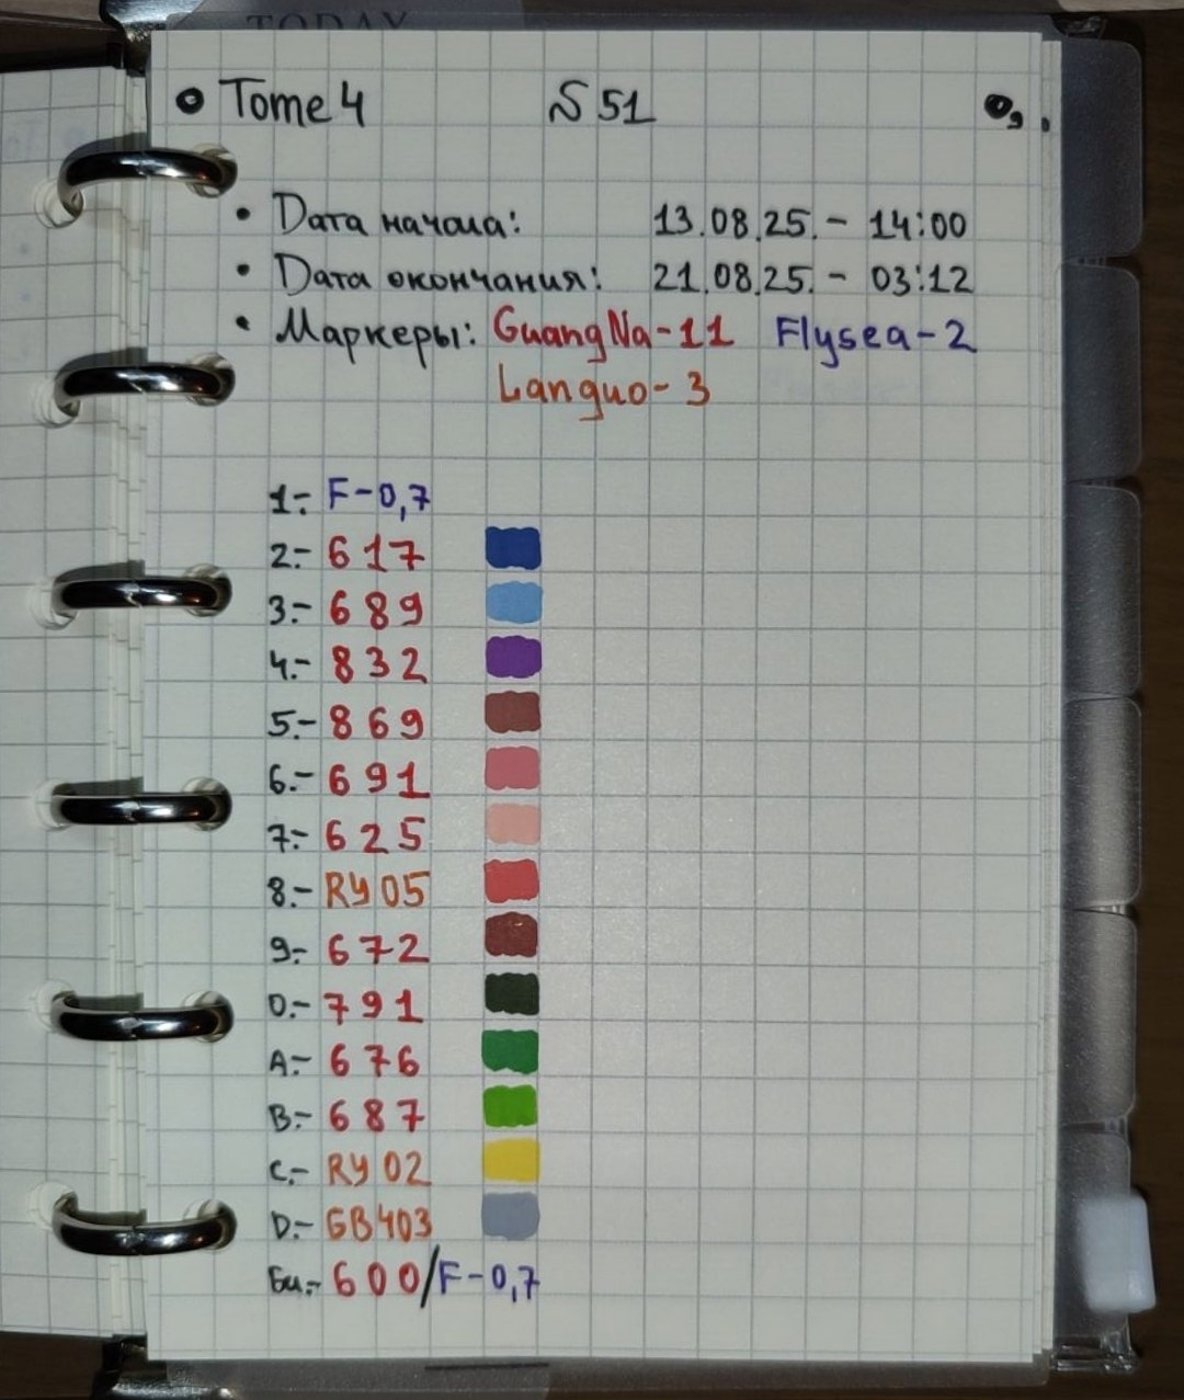 TODAY
Tome 4 S 51
Дата начала: 13.08.25. - 14:00
Дата окончания: 21.08.25. - 03:12
Маркеры: GuangNa-11 Flysea-2
Languo-3
1:- F-0,7
2:- 617
3:- 689
4:- 832
5:- 869
6:- 691
7:- 625
8:- RY05
9:- 672
0:- 791
A:- 676
B:- 687
C:- RY02
D:- GB403
Бц:- 600/F-0,7